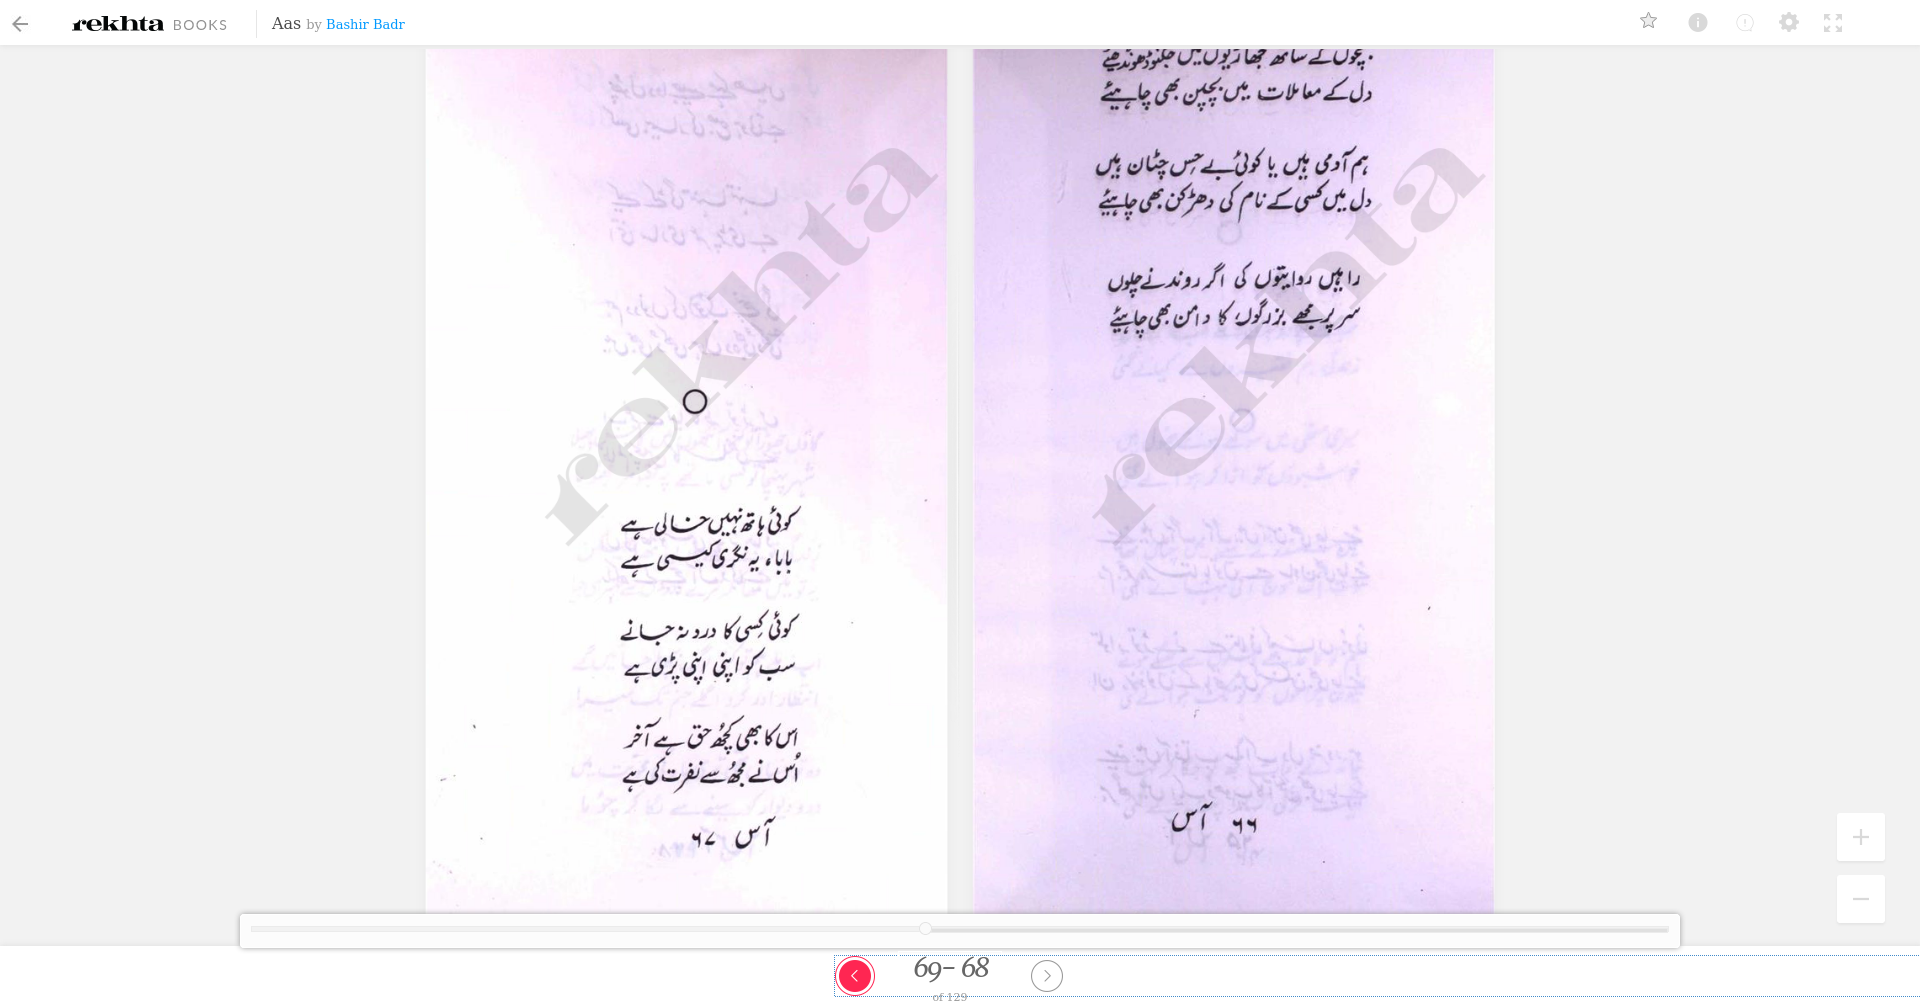 rekhta BOOKS
Aas by Bashir Badr
بچوں کے ساتھ جھاڑیوں میں جگنو ڈھونڈھیے
دل کے معاملات میں بچپن بھی چاہیئے
ہم آدمی ہیں یا کوئی بے حِس چٹان ہیں
دل میں کسی کے نام کی دھڑکن بھی چاہیئے
راہیں روایتوں کی اگر روندنے چلوں
سر پر مجھے بزرگوں کا دامن بھی چاہیئے
۶۶ آس
rekhta
کوئی ہاتھ نہیں خالی ہے
بابا، یہ نگری کیسی ہے
کوئی کِسی کا درد نہ جانے
سب کو اپنی اپنی پڑی ہے
اس کا بھی کچُھ حق ہے آخر
اُس نے مجُھ سے نفرت کی ہے
آس ۶۷
rekhta
69- 68
of 129